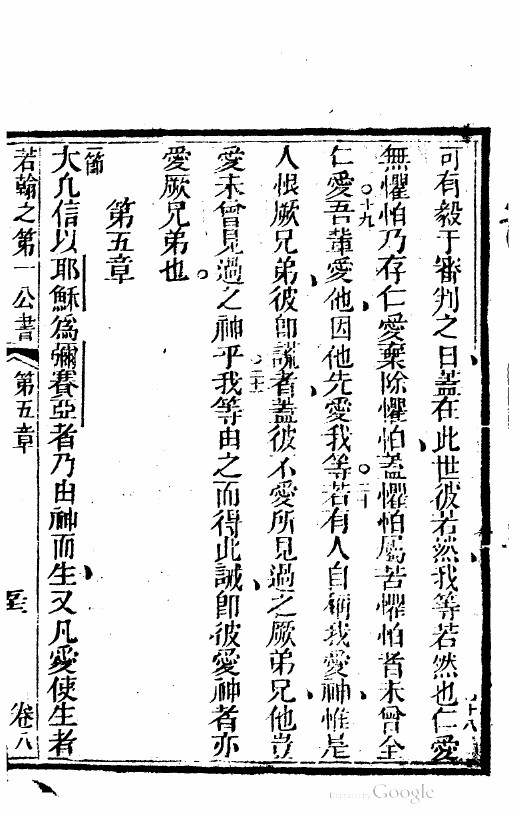 可有毅于審判之日蓋在此世彼若然我等若然也仁愛
十八
無懼怕乃存仁愛棄除懼怕蓋懼怕屬苦懼怕者未曾全
仁愛吾輩愛他因他先愛我等若有人自稱我愛神惟是
十九
二十
人恨厥兄弟彼卽謊者蓋彼不愛所見過之厥弟兄他豈
愛未曾見過之神乎我等由之而得此誡卽彼愛神者亦
二十一
愛厥兄弟也
第五章
一節
大凡信以耶穌為彌賽亞者乃由神而生又凡愛使生者
若翰之第一公書 第五章 卷八
Digitized by Google